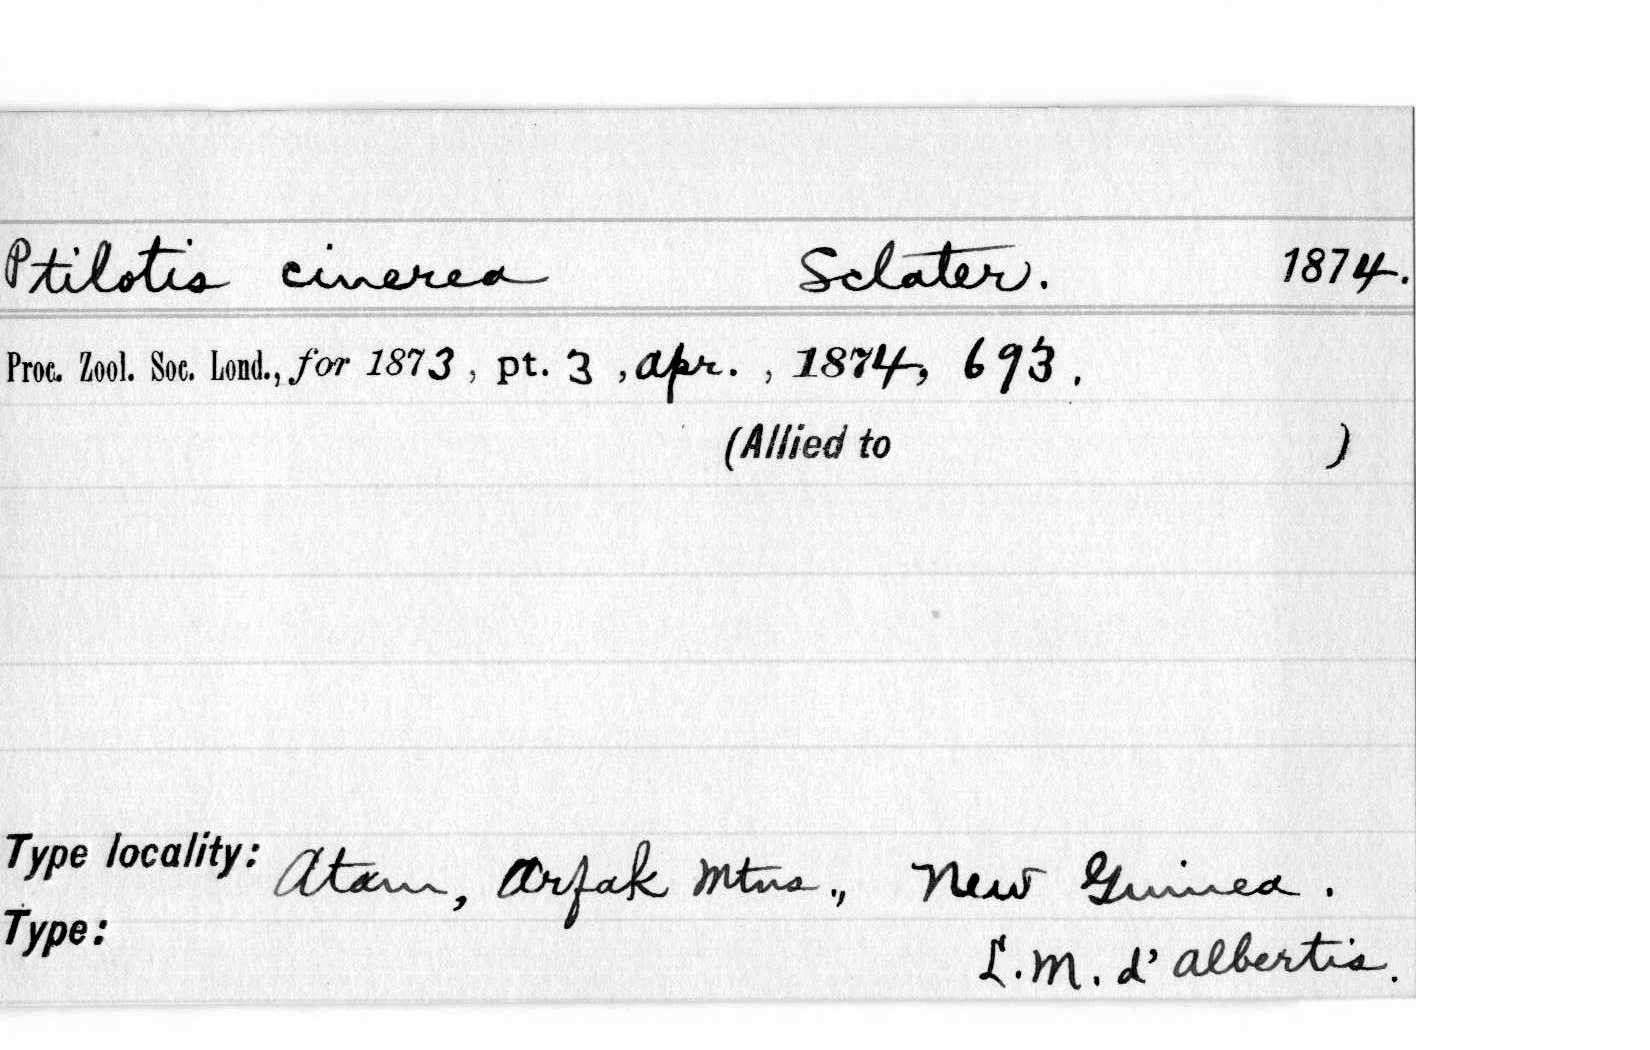 Ptilotis cinerea Sclater. 1874.
Proc. Zool. Soc. Lond., for 1873, pt. 3, Apr., 1874, 693.
(Allied to )
Type locality: Atam, Arfak Mtns., New Guinea.
Type:
L. M. d'Albertis.